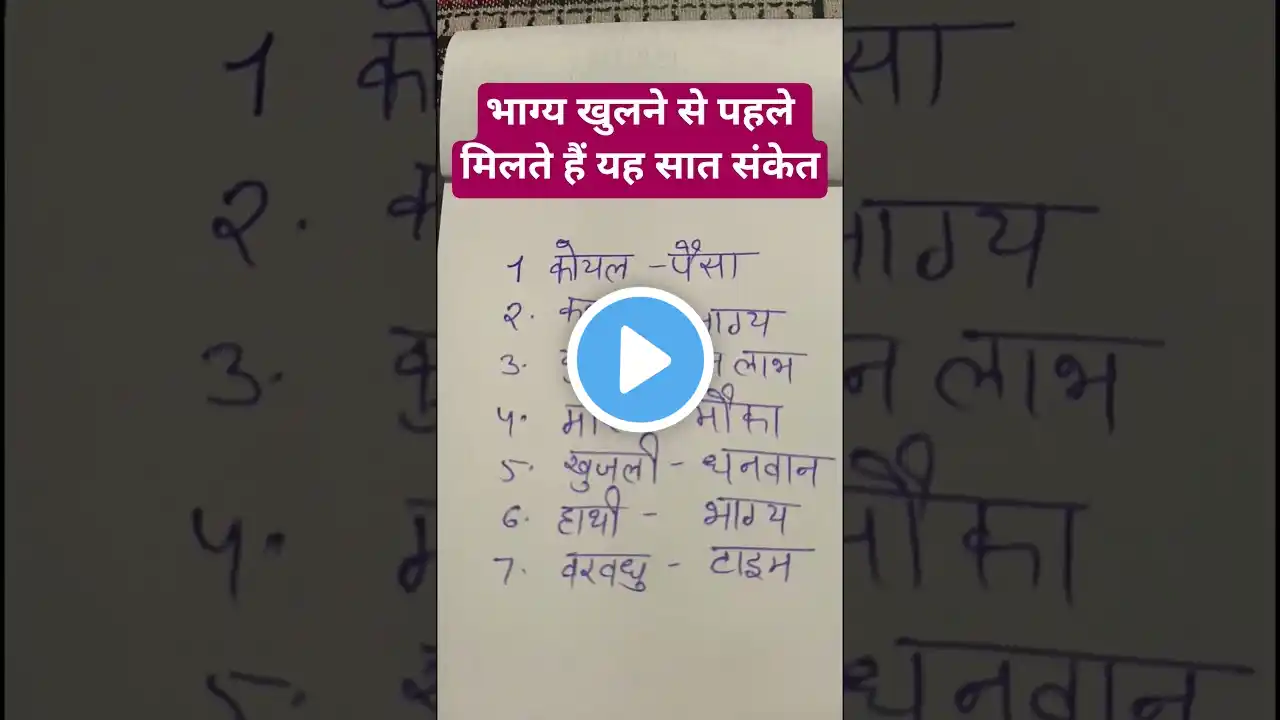 भाग्य खुलने से पहले
मिलते हैं यह सात संकेत
1 कोयल - पैसा
२.
3. लाभ
५. मौका
5. खुजली - धनवान
6. हाथी - भाग्य
7. वरवधु - टाइम